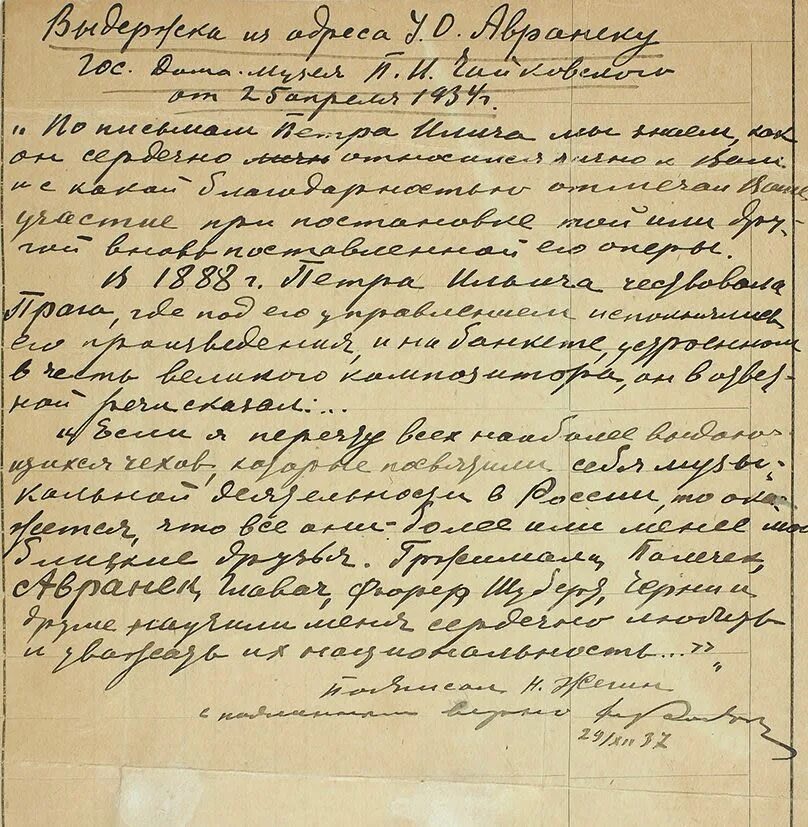 Выдержка из адреса У.О. Авранеку
Гос. Дома-музея П.И. Чайковского
от 25 апреля 1934 г.
„По письмам Петра Илича мы знаем, как
он сердечно лично относился лично к Вам
и с какой благодарностью отмечал Ваше
участие при постановке той или дру-
гой вновь поставленной его оперы.
В 1888 г. Петра Ильича чествовала
Прага, где под его управлением исполнялись
его произведения, и на банкете, устроенном
в честь великого композитора, он в ответ-
ной речи сказал:...
„Если я перечту всех наиболее выдаю-
щихся чехов, которые посвятили себя музы-
кальной деятельности в России, то ока-
жется, что все они - более или менее мои
близкие друзья. Гржимали, Палечек,
Авранек, Главач, Фюрер, Шуберт, Черни и
другие научили меня сердечно любить
и уважать их национальность..."„
Подписал Н. Жегин
с подлинным верно
29/XII 37